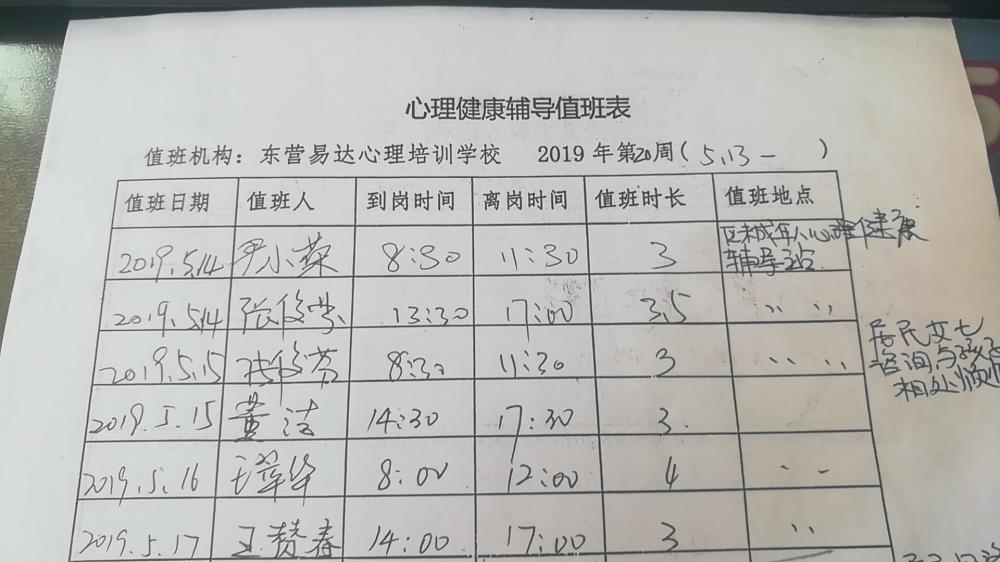 心理健康辅导值班表
值班机构：东营易达心理培训学校 2019年第20周（5.13- ）
值班日期 值班人 到岗时间 离岗时间 值班时长 值班地点
2019.5.14 尹小荣 8:30 11:30 3 区未成年人心理健康
辅导站
2019.5.14 13:30 17:00 3.5 〃 〃
2019.5.15 8:30 11:30 3 〃 〃
居民女士
咨询与孩子
相处烦恼
2019.5.15 董洁 14:30 17:30 3
2019.5.16 王翠华 8:00 12:00 4 〃
2019.5.17 王赞春 14:00 17:00 3 〃